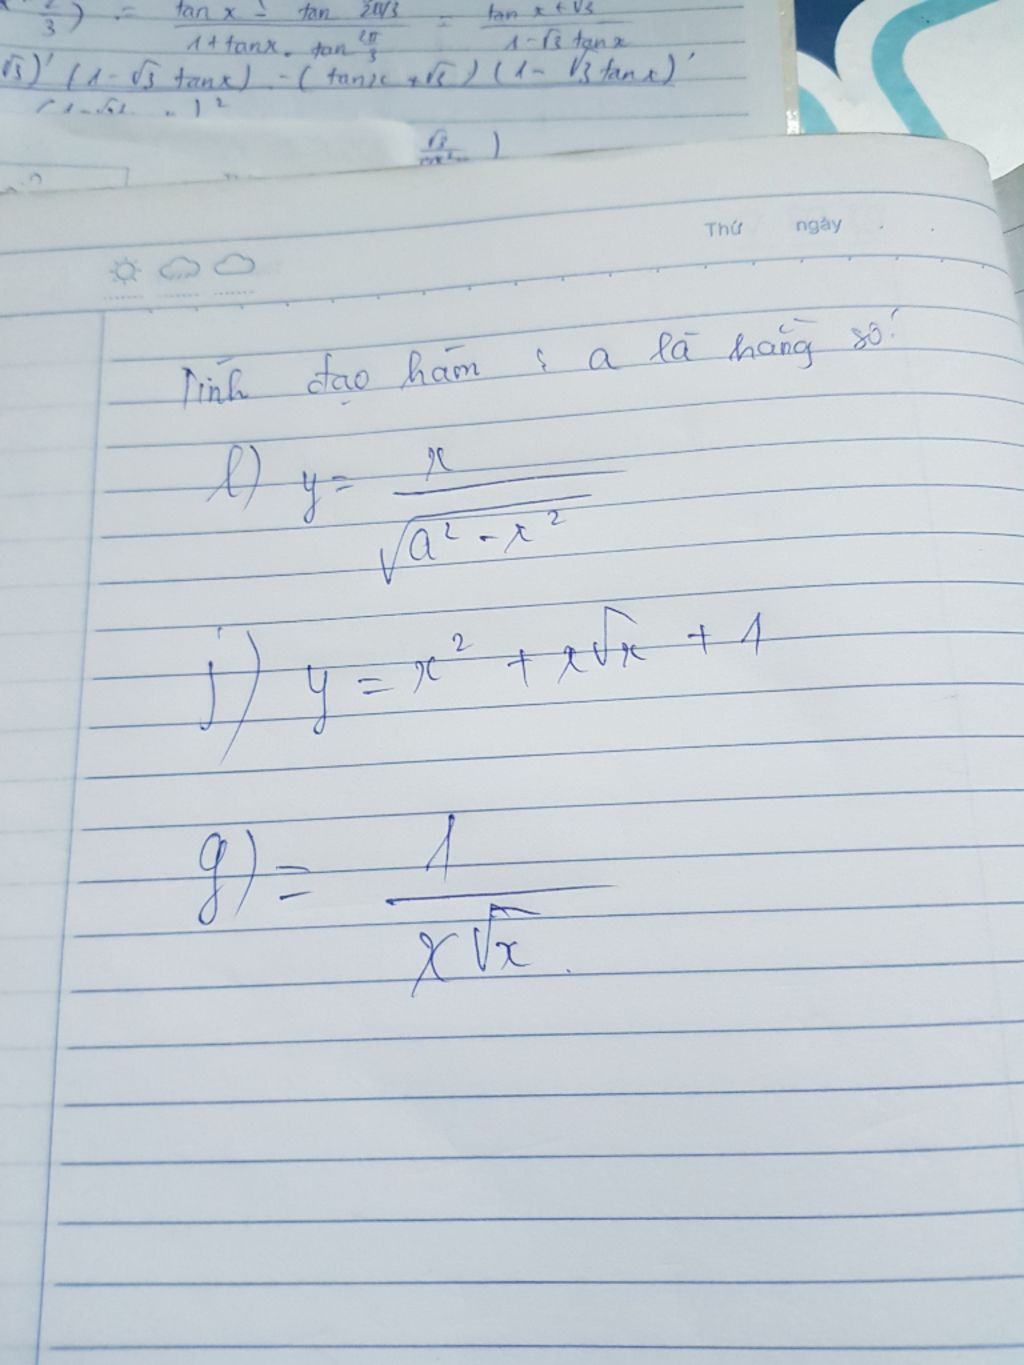 3) = tan x - tan 2π/3 / 1 + tan x . tan 2π/3 = tan x + √3 / 1 - √3 tan x
√3)' (1 - √3 tan x) - (tan x + √3) (1 - √3 tan x)'
Thứ ngày
Tính đạo hàm : a là hằng số
l) y = x / √(a² - x²)
j) y = x² + x√x + 1
g) = 1 / x√x